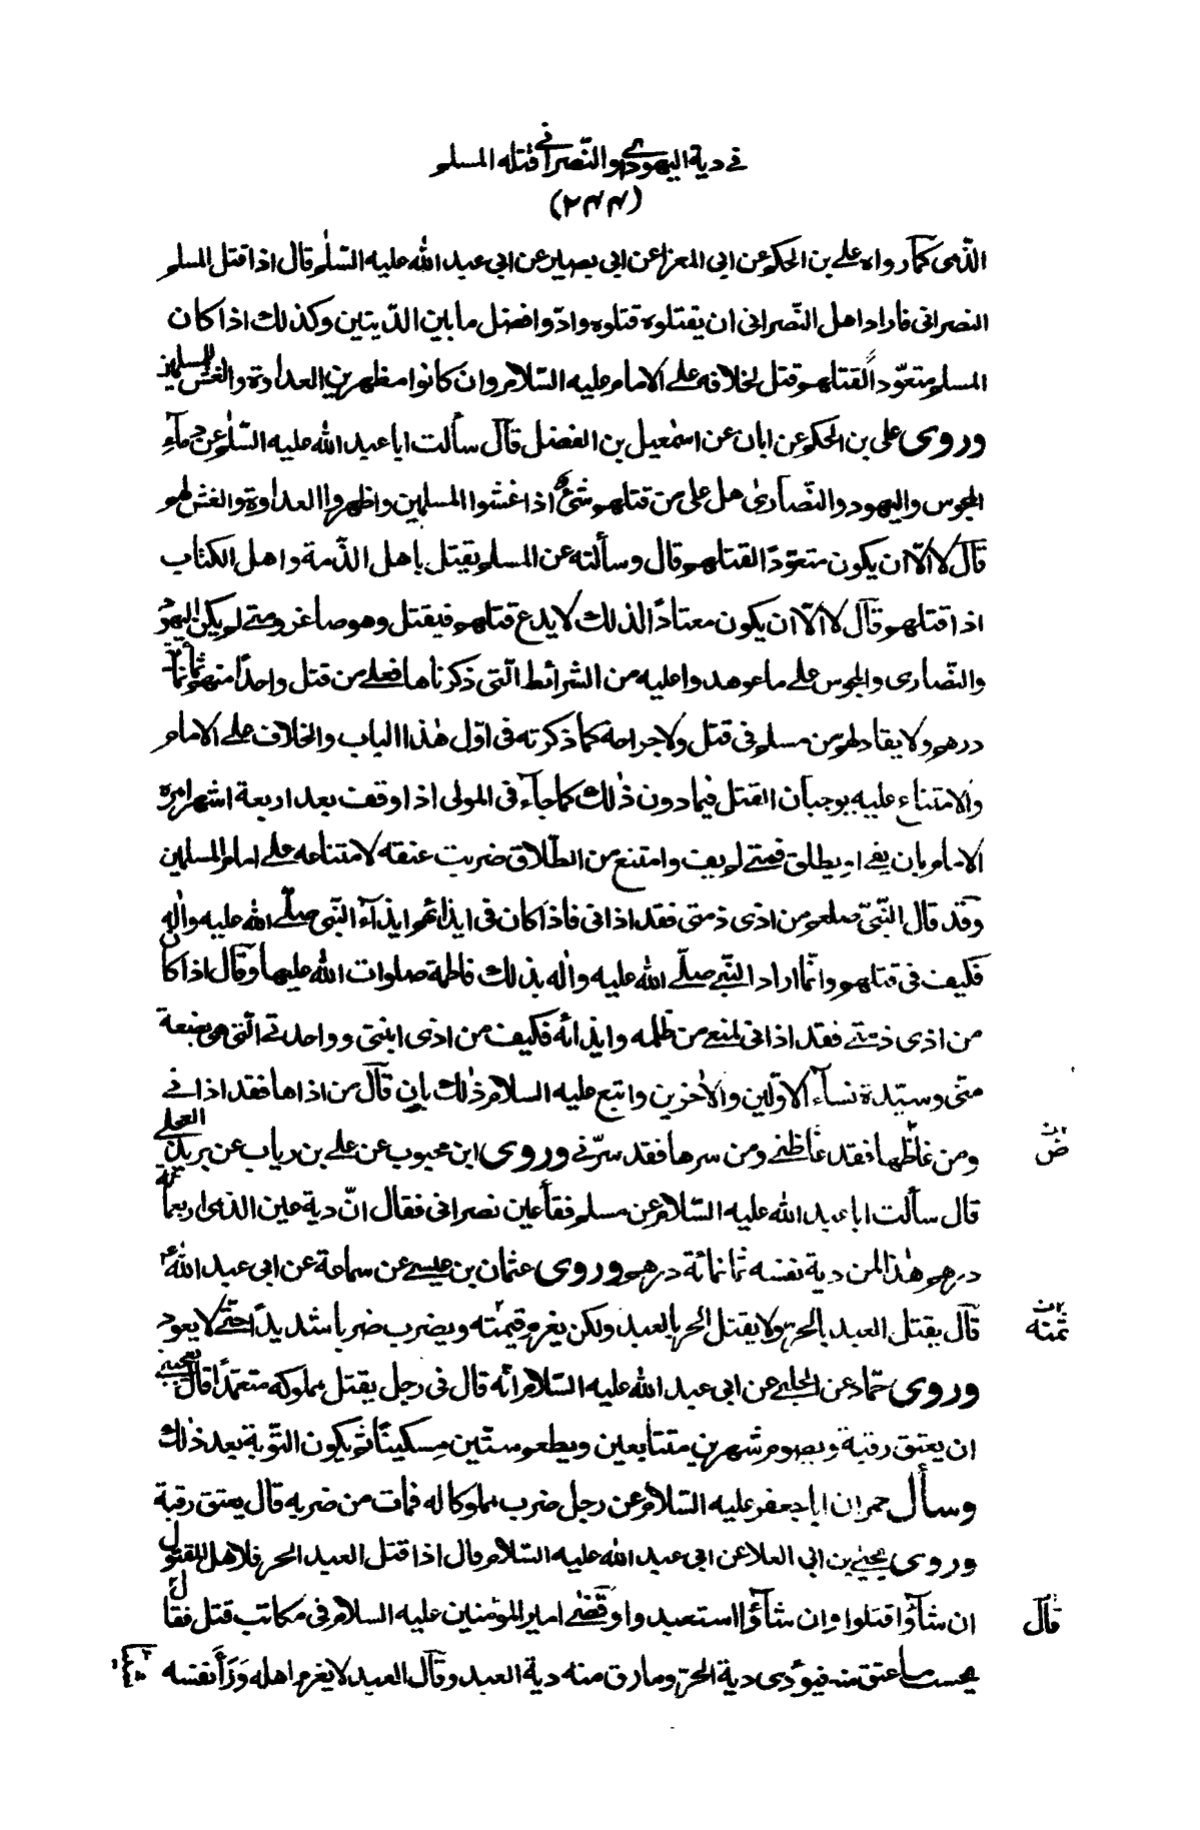 في دية اليهودي والنصراني قتله المسلم
(٢٤٤)
الذمى كما رواه علي بن الحكم عن ابى المعزا عن ابى بصير عن ابى عبد الله عليه السّلم قال اذا قتل المسلم
النصرانى فاراد اهل النّصرانى ان يقتلوه قتلوه وادّوا فضل ما بين الدّيتين وكذلك اذا كان
المسلم متعوّداً لقتلهم قتل لخلافه على الامام عليه السّلام وان كانوا مظهرين العداوة والغش للمسلمين
وروى على بن الحكم عن ابان عن اسمعيل بن الفضل قال سألت ابا عبد الله عليه السّلم عن دماء
المجوس واليهود والنّصارى هل على من قتلهم شئ اذا غشوا المسلمين واظهروا العداوة والغش لهم
قال لا الّا ان يكون متعوّدًا لقتلهم قال وسألته عن المسلم يقتل باهل الذّمة واهل الكتاب
اذا قتلهم قال لا الّا ان يكون معتادًا لذلك لا يدع قتلهم فيقتل وهو صاغر ومتى لم يكن اليهود
والنّصارى والمجوس على ما عوهدوا عليه من الشرائط الّتى ذكرناها فعلى من قتل واحدًا منهم ثمانمائة
درهم ولا يقاد لهم من مسلم فى قتل ولا جراحة كما ذكرته فى اوّل هذا الباب والخلاف على الامام
والامتناع عليه يوجبان القتل فيما دون ذلك كما جاء فى المولى اذا وقف بعد اربعة اشهر امره
الامام بان يفى او يطلق فمتى لم يف وامتنع من الطّلاق ضربت عنقه لامتناعه على امام المسلمين
وقد قال النّبىّ صلعم من اذى ذمتى فقد اذانى فاذا كان فى ايذائهم ايذاء النّبى صلّى الله عليه واله
فكيف فى قتلهم وانّما اراد النّبى صلّى الله عليه واله بذلك فاطمة صلوات الله عليها وقال اذا كان
من اذى ذمّتى فقد اذانى لمنعى من ظلمه وايذائه فكيف من اذى ابنتى وواحدتى الّتى هى بضعة
منّى وسيّدة نساء الاوّلين والاخرين واتبع عليه السلام ذلك بان قال من اذاها فقد اذانى
ومن غاظها فقد غاظنى ومن سرها فقد سرّنى وروى ابن محبوب عن على بن رياب عن بريد العجلى
قال سألت ابا عبد الله عليه السّلام عن مسلم فقأ عين نصرانى فقال انّ دية عين الذمى اربعمائة
درهم هذا لمن دية نفسه ثمانمائة درهم وروى عثمان بن عيسى عن سماعة عن ابى عبد الله ع
قال يقتل العبد بالحر ولا يقتل الحر بالعبد ولكن يغرم قيمته ويضرب ضربا شديداً حتّى لا يعود
وروى حمّاد عن الحلبى عن ابى عبد الله عليه السّلام انّه قال فى رجل يقتل مملوكه متعمّدًا قال يعجبنى
ان يعتق رقبة ويصوم شهرين متتابعين ويطعم ستّين مسكينًا ثم يكون التّوبة بعد ذلك
وسأل حمران ابا جعفر عليه السّلام عن رجل ضرب مملوكا له فمات من ضربه قال يعتق رقبة
وروى يحيى بن ابى العلا عن ابى عبد الله عليه السّلام قال اذا قتل العبد الحر فلاهل المقتول
ان شاؤا قتلوا وان شاؤا استعبدوا وقضى امير المؤمنين عليه السلام فى مكاتب قتل فقال
يحسب ما عتق منه فيؤدى دية الحرّ وما رق منه دية العبد وقال العبد لا يغرم اهله وراء نفسه
ض
ثمنه
قال